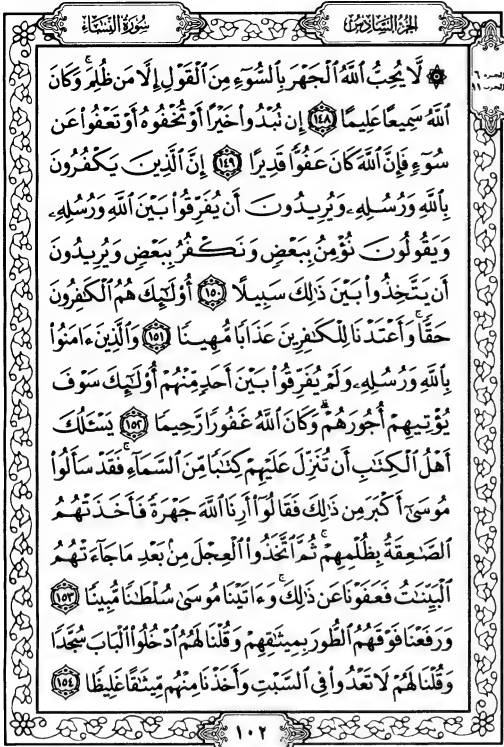 سُورَةُ النِّسَاءِ
الجُزْءُ السَّادِسُ
۞ لَّا يُحِبُّ اللَّهُ الْجَهْرَ بِالسُّوٓءِ مِنَ الْقَوْلِ إِلَّا مَن ظُلِمَ ۚ وَكَانَ
اللَّهُ سَمِيعًا عَلِيمًا ﴿١٤٨﴾ إِن تُبْدُوا۟ خَيْرًا أَوْ تُخْفُوهُ أَوْ تَعْفُوا۟ عَن
سُوٓءٍ فَإِنَّ اللَّهَ كَانَ عَفُوًّا قَدِيرًا ﴿١٤٩﴾ إِنَّ الَّذِينَ يَكْفُرُونَ
بِاللَّهِ وَرُسُلِهِۦ وَيُرِيدُونَ أَن يُفَرِّقُوا۟ بَيْنَ اللَّهِ وَرُسُلِهِۦ
وَيَقُولُونَ نُؤْمِنُ بِبَعْضٍ وَنَكْفُرُ بِبَعْضٍ وَيُرِيدُونَ
أَن يَتَّخِذُوا۟ بَيْنَ ذَٰلِكَ سَبِيلًا ﴿١٥٠﴾ أُو۟لَٰٓئِكَ هُمُ الْكَٰفِرُونَ
حَقًّا ۚ وَأَعْتَدْنَا لِلْكَٰفِرِينَ عَذَابًا مُّهِينًا ﴿١٥١﴾ وَالَّذِينَ ءَامَنُوا۟
بِاللَّهِ وَرُسُلِهِۦ وَلَمْ يُفَرِّقُوا۟ بَيْنَ أَحَدٍ مِّنْهُمْ أُو۟لَٰٓئِكَ سَوْفَ
يُؤْتِيهِمْ أُجُورَهُمْ ۗ وَكَانَ اللَّهُ غَفُورًا رَّحِيمًا ﴿١٥٢﴾ يَسْـَٔلُكَ
أَهْلُ الْكِتَٰبِ أَن تُنَزِّلَ عَلَيْهِمْ كِتَٰبًا مِّنَ السَّمَآءِ ۚ فَقَدْ سَأَلُوا۟
مُوسَىٰٓ أَكْبَرَ مِن ذَٰلِكَ فَقَالُوٓا۟ أَرِنَا اللَّهَ جَهْرَةً فَأَخَذَتْهُمُ
الصَّٰعِقَةُ بِظُلْمِهِمْ ۚ ثُمَّ اتَّخَذُوا۟ الْعِجْلَ مِنۢ بَعْدِ مَا جَآءَتْهُمُ
الْبَيِّنَٰتُ فَعَفَوْنَا عَن ذَٰلِكَ ۚ وَءَاتَيْنَا مُوسَىٰ سُلْطَٰنًا مُّبِينًا ﴿١٥٣﴾
وَرَفَعْنَا فَوْقَهُمُ الطُّورَ بِمِيثَٰقِهِمْ وَقُلْنَا لَهُمُ ادْخُلُوا۟ الْبَابَ سُجَّدًا
وَقُلْنَا لَهُمْ لَا تَعْدُوا۟ فِى السَّبْتِ وَأَخَذْنَا مِنْهُم مِّيثَٰقًا غَلِيظًا ﴿١٥٤﴾
١٠٢